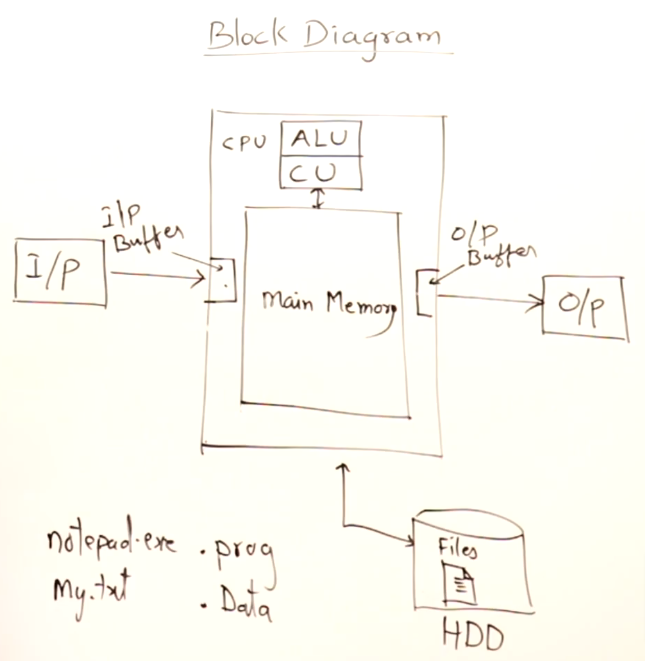 Block Diagram
CPU
ALU
CU
I/P
Buffer
I/P
Main Memory
O/P
Buffer
O/P
notepad.exe . prog
My.txt . Data
Files
HDD